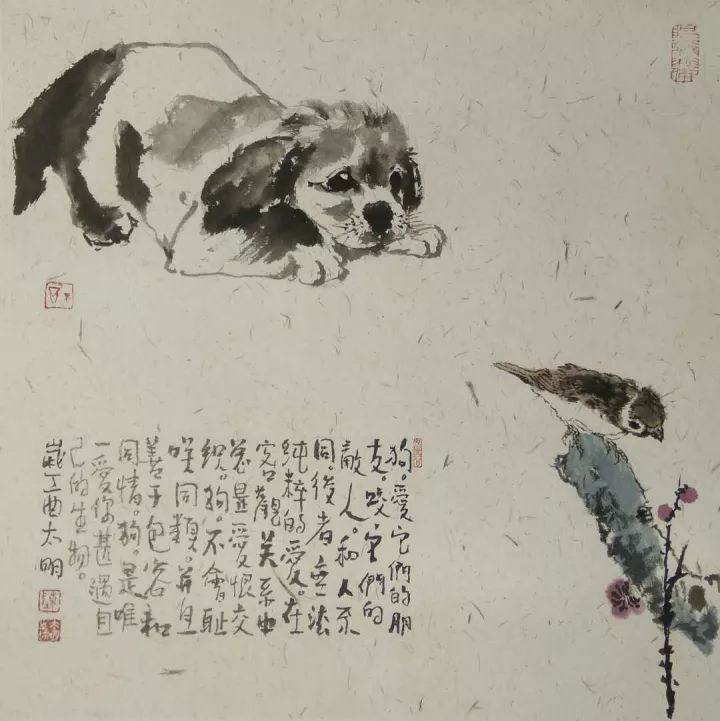 狗。愛它們的朋
友。咬它們的
敵人。和人不
同。後者無法
純粹的愛。在
客觀关系中
总是愛恨交
织。狗。不會耻
咲同類。并且
善于包容和
同情。狗。是唯
一愛你甚過自
己的生物。
歲丁酉太明